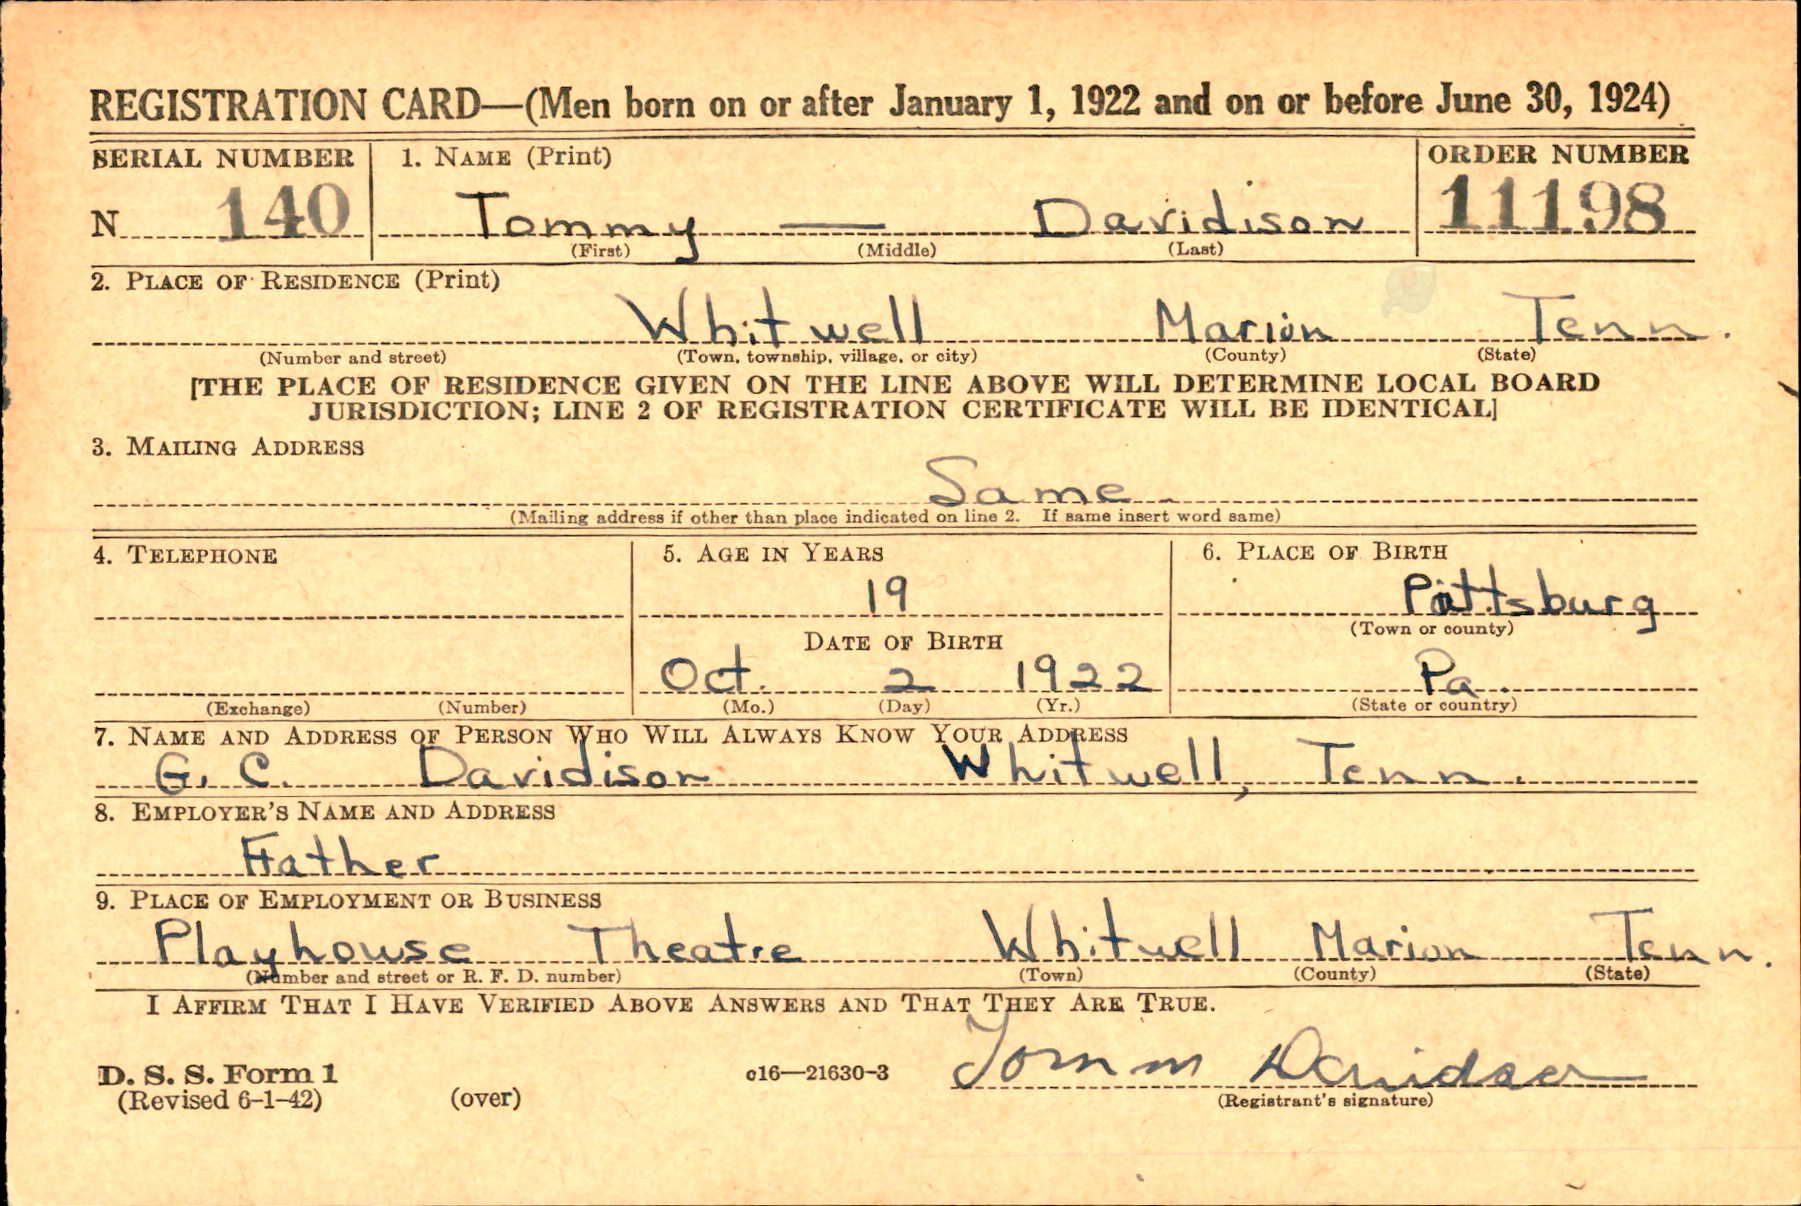 REGISTRATION CARD—(Men born on or after January 1, 1922 and on or before June 30, 1924)
SERIAL NUMBER 1. NAME (Print) ORDER NUMBER
N 140 Tommy — Davidison 11198
(First) (Middle) (Last)
2. PLACE OF RESIDENCE (Print)
Whitwell Marion Tenn.
(Number and street) (Town, township, village, or city) (County) (State)
[THE PLACE OF RESIDENCE GIVEN ON THE LINE ABOVE WILL DETERMINE LOCAL BOARD
JURISDICTION; LINE 2 OF REGISTRATION CERTIFICATE WILL BE IDENTICAL]
3. MAILING ADDRESS
Same
(Mailing address if other than place indicated on line 2. If same insert word same)
4. TELEPHONE 5. AGE IN YEARS 6. PLACE OF BIRTH
19 Pittsburg
(Town or county)
DATE OF BIRTH
Oct. 2 1922 Pa.
(Exchange) (Number) (Mo.) (Day) (Yr.) (State or country)
7. NAME AND ADDRESS OF PERSON WHO WILL ALWAYS KNOW YOUR ADDRESS
G. C. Davidison Whitwell, Tenn.
8. EMPLOYER'S NAME AND ADDRESS
Father
9. PLACE OF EMPLOYMENT OR BUSINESS
Playhowse Theatre Whitwell Marion Tenn.
(Number and street or R. F. D. number) (Town) (County) (State)
I AFFIRM THAT I HAVE VERIFIED ABOVE ANSWERS AND THAT THEY ARE TRUE.
D. S. S. Form 1
(Revised 6-1-42) (over) c16—21630-3 Tomm Davidson
(Registrant's signature)